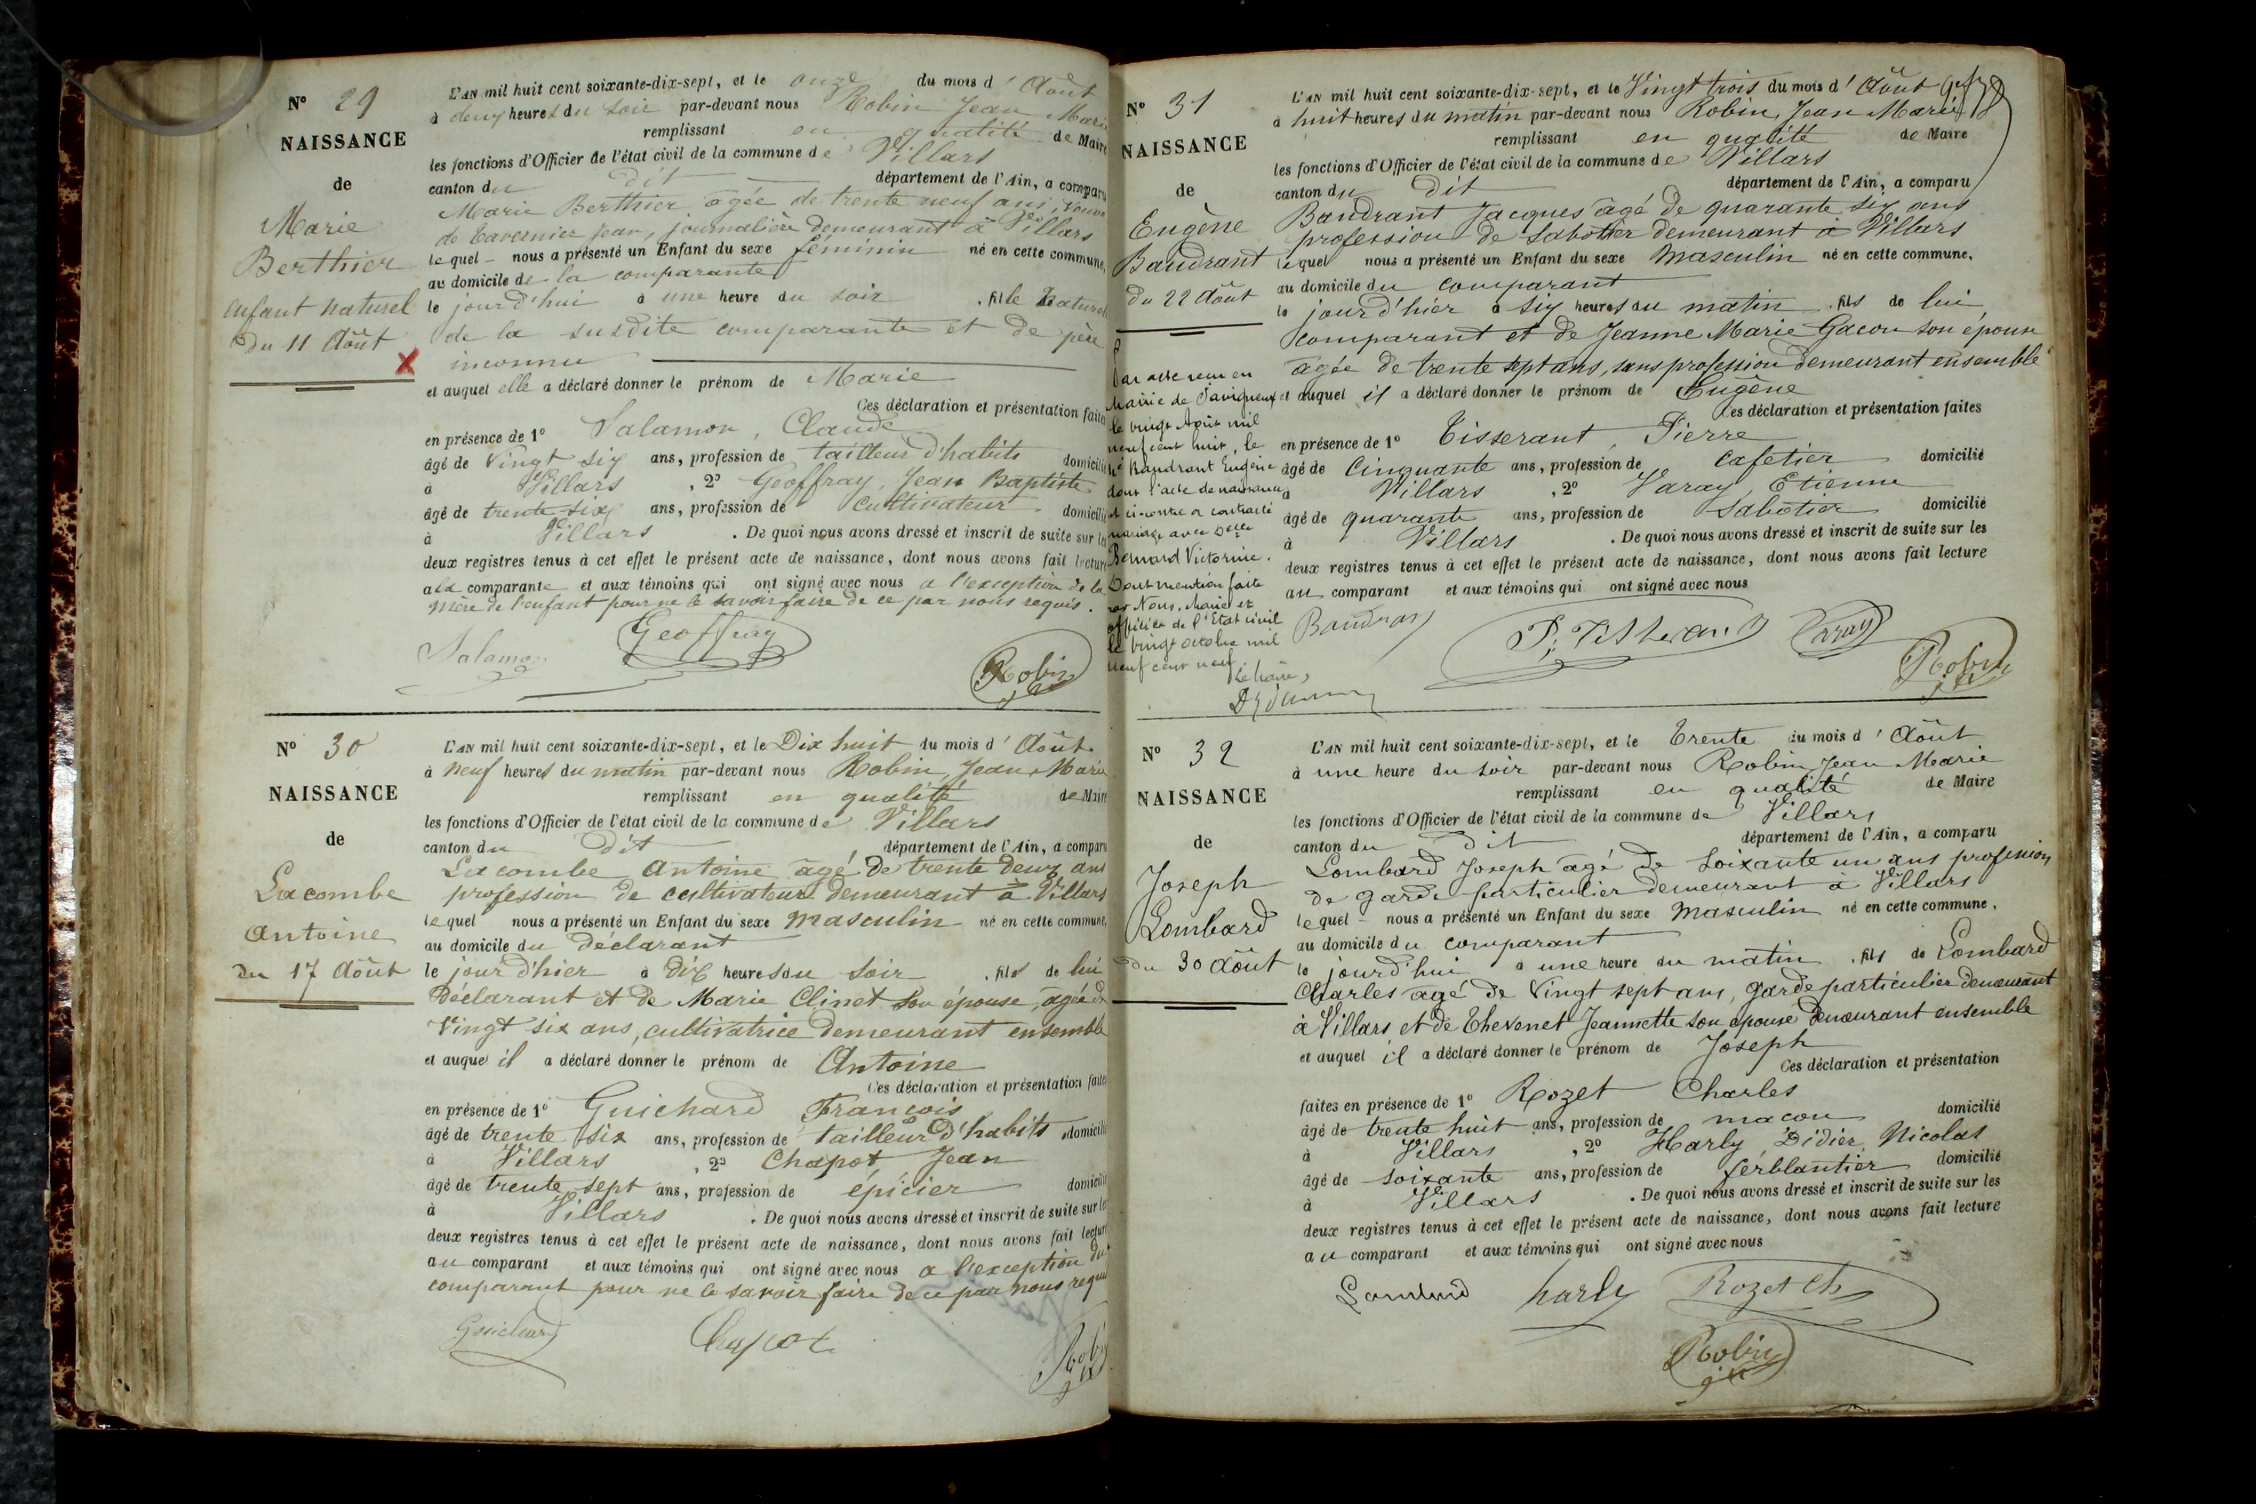 N° 29
NAISSANCE
de
Marie
Berthier
enfant naturel
du 11 Août
L'AN mil huit cent soixante-dix-sept, et le onze du mois d'Août
à deux heures du soir par-devant nous Robin Jean Marie
remplissant en qualité de Maire
les fonctions d'Officier de l'état civil de la commune de Villars
canton du dit département de l'Ain, a comparu
Marie Berthier âgée de trente neuf ans, veuve
de Tavernier Jean, journalière demeurant à Villars
lequel nous a présenté un Enfant du sexe féminin né en cette commune,
au domicile de la comparante
le jourd'hui à une heure du soir, fille naturelle
de la susdite comparante et de père
inconnu
et auquel elle a déclaré donner le prénom de Marie
Ces déclaration et présentation faites
en présence de 1° Salamon, Claude
âgé de vingt six ans, profession de tailleur d'habits domicilié
à Villars, 2° Geoffray, Jean Baptiste
âgé de trente six ans, profession de cultivateur domicilié
à Villars. De quoi nous avons dressé et inscrit de suite sur les
deux registres tenus à cet effet le présent acte de naissance, dont nous avons fait lecture
à la comparante et aux témoins qui ont signé avec nous à l'exception de la
mère de l'enfant pour ne le savoir faire de ce par nous requis.
Salamon Geoffray
Robin
N° 30
NAISSANCE
de
Lacombe
Antoine
du 17 Août
L'AN mil huit cent soixante-dix-sept, et le Dix huit du mois d'Août
à neuf heures du matin par-devant nous Robin, Jean Marie
remplissant en qualité de Maire
les fonctions d'Officier de l'état civil de la commune de Villars
canton du dit département de l'Ain, a comparu
Lacombe Antoine âgé de trente deux ans
profession de cultivateur demeurant à Villars
lequel nous a présenté un Enfant du sexe masculin né en cette commune,
au domicile du déclarant
le jour d'hier à dix heures du soir, fils de lui
déclarant et de Marie Clinet son épouse, âgée de
vingt six ans, cultivatrice demeurant ensemble
et auquel il a déclaré donner le prénom de Antoine
Ces déclaration et présentation faites
en présence de 1° Guichard François
âgé de trente six ans, profession de tailleur d'habits domicilié
à Villars, 2° Chapot Jean
âgé de trente sept ans, profession de épicier domicilié
à Villars. De quoi nous avons dressé et inscrit de suite sur les
deux registres tenus à cet effet le présent acte de naissance, dont nous avons fait lecture
au comparant et aux témoins qui ont signé avec nous à l'exception du
comparant pour ne le savoir faire de ce par nous requis
Guichard Chapot Robin
N° 31
NAISSANCE
de
Eugène
Baudrant
du 22 Août
Par acte reçu en
Mairie de Savigneux
le vingt Août mil
neuf cent huit, le
né Baudrant Eugène
dont l'acte de naissance
est ci-contre a contracté
mariage avec Delle
Bernard Victorine.
Dont mention faite
par Nous, Maire et
officier de l'Etat civil
le vingt octobre mil
neuf cent neuf
Le Maire,
L'AN mil huit cent soixante-dix-sept, et le Vingt trois du mois d'Août
à huit heures du matin par-devant nous Robin, Jean Marie
remplissant en qualité de Maire
les fonctions d'Officier de l'état civil de la commune de Villars
canton du dit département de l'Ain, a comparu
Baudrant Jacques âgé de quarante six ans
profession de sabotier demeurant à Villars
lequel nous a présenté un Enfant du sexe masculin né en cette commune,
au domicile du comparant
le jour d'hier à six heures du matin, fils de lui
comparant et de Jeanne Marie Gacon son épouse
âgée de trente sept ans, sans profession demeurant ensemble
et auquel il a déclaré donner le prénom de Eugène
Ces déclaration et présentation faites
en présence de 1° Tisserant, Pierre
âgé de cinquante ans, profession de cafetier domicilié
à Villars, 2° Varay, Etienne
âgé de quarante ans, profession de sabotier domicilié
à Villars. De quoi nous avons dressé et inscrit de suite sur les
deux registres tenus à cet effet le présent acte de naissance, dont nous avons fait lecture
au comparant et aux témoins qui ont signé avec nous
Baudran P. Tisserand Varay
Robin
N° 32
NAISSANCE
de
Joseph
Lombard
du 30 Août
L'AN mil huit cent soixante-dix-sept, et le Trente du mois d'Août
à une heure du soir par-devant nous Robin Jean Marie
remplissant en qualité de Maire
les fonctions d'Officier de l'état civil de la commune de Villars
canton du dit département de l'Ain, a comparu
Lombard Joseph âgé de soixante un ans profession
de garde particulier demeurant à Villars
lequel nous a présenté un Enfant du sexe masculin né en cette commune,
au domicile du comparant
le jourd'hui à une heure du matin, fils de Lombard
Charles âgé de vingt sept ans, garde particulier demeurant
à Villars et de Thevenet Jeannette son épouse demeurant ensemble
et auquel il a déclaré donner le prénom de Joseph
Ces déclaration et présentation
faites en présence de 1° Rozet Charles
âgé de trente huit ans, profession de maçon domicilié
à Villars, 2° Harly Didier Nicolas
âgé de soixante ans, profession de ferblantier domicilié
à Villars. De quoi nous avons dressé et inscrit de suite sur les
deux registres tenus à cet effet le présent acte de naissance, dont nous avons fait lecture
au comparant et aux témoins qui ont signé avec nous
Lombard harly Rozet Ch
Robin